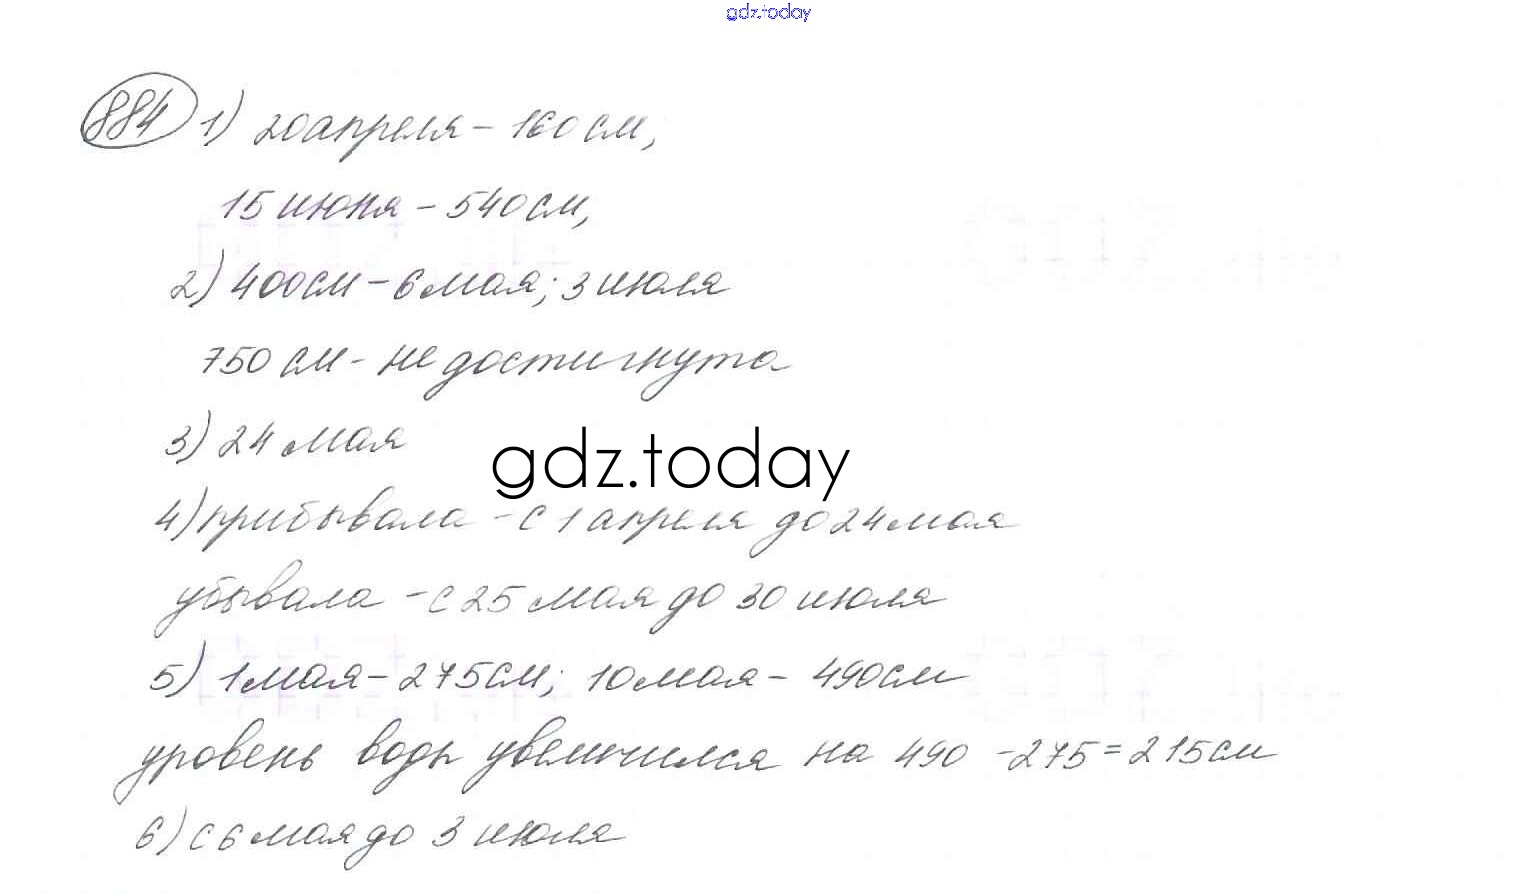 gdz.today
884 1) 20 апреля – 160 см,
15 июня – 540 см,
2) 400 см – 6 мая; 3 июля
750 см – не достигнута
3) 24 мая
gdz.today
4) прибывала – с 1 апреля до 24 мая
убывала – с 25 мая до 30 июля
5) 1 мая – 275 см; 10 мая – 490 см
уровень воды увеличился на 490 – 275 = 215 см
6) с 6 мая до 3 июля